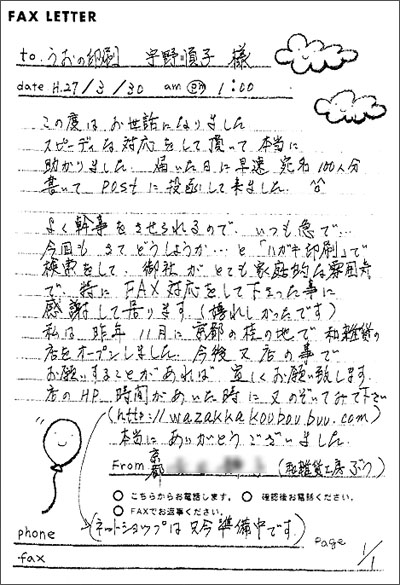 FAX LETTER
to. うおの印刷 宇野順子 様
date H.27/3/30 am pm 1:00
この度は お世話になりました
スピーディな対応をして頂いて 本当に
助かりました。届いた日に早速 宛名100人分
書いて POSTに投函して来ました。^^
よく幹事をさせられるので、いつも急で…
今回も さてどうしようか…と「ハガキ印刷」で
検索をして、御社が とても家庭的な雰囲気
で、特に FAX対応をして下さった事に
感謝して居ります（嬉しかったです）
私は 昨年 11月に 京都の桂の地で 和雑貨の
店をオープンしました。今後 又 店の事で
お願いすることがあれば 宜しくお願い致します
店のHP 時間があいた時に 又のぞいてみて下さい
(http://wazakkakoubou-buu.com)
本当に ありがとうございました。
From 京都 (和雑貨工房 ぶう)
○ こちらからお電話します。 ○ 確認後お電話ください。
○ FAXでお返事ください。
phone (ネットショップは只今準備中です) page 1/1
fax